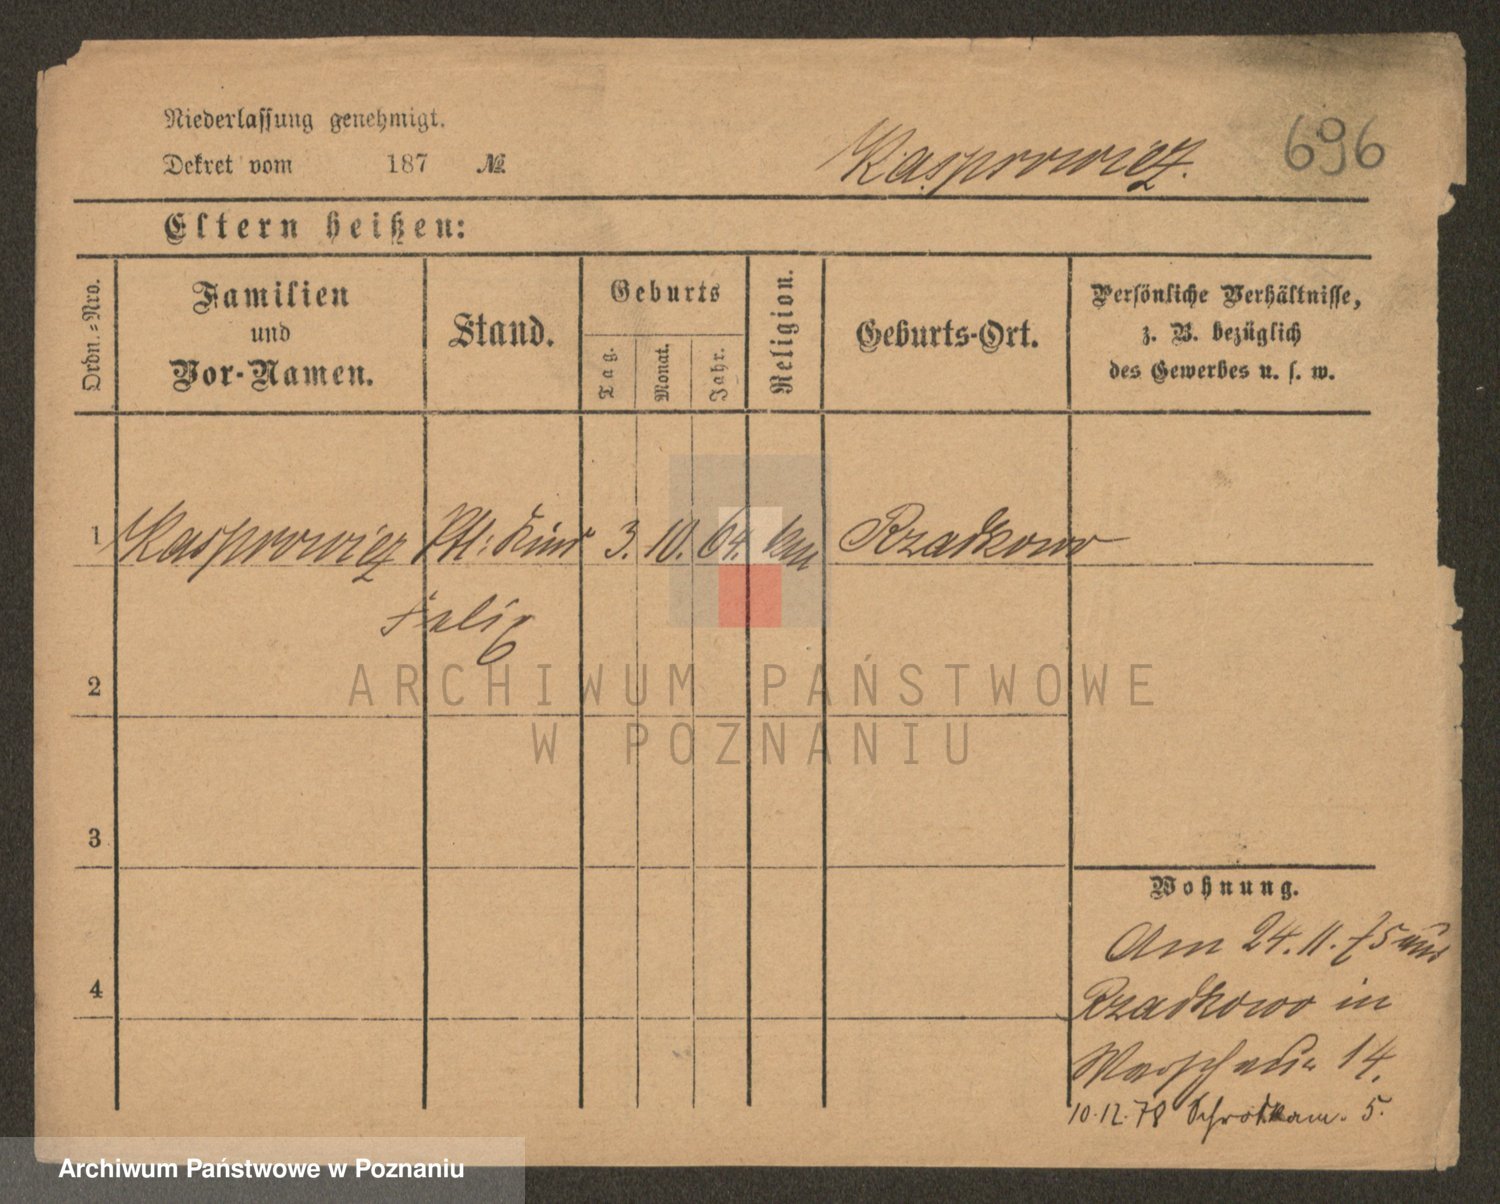 Niederlassung genehmigt.
Dekret vom 187 №
Kasprowicz.
696
Eltern heißen:
Ordn.-Nro.
Familien
und
Vor-Namen.
Stand.
Geburts
Tag.
Monat.
Jahr.
Religion.
Geburts-Ort.
Persönliche Verhältnisse,
z. B. bezüglich
des Gewerbes u. s. w.
1 Kasprowicz Pfl: Kind 3. 10. 64. Rzadkowo
Felix
2
3
4
Wohnung.
Am 24. 11. 75 aus
Rzadkowo in
Warschauer 14.
10.12.78 5.
ARCHIWUM PAŃSTWOWE
W POZNANIU
Archiwum Państwowe w Poznaniu